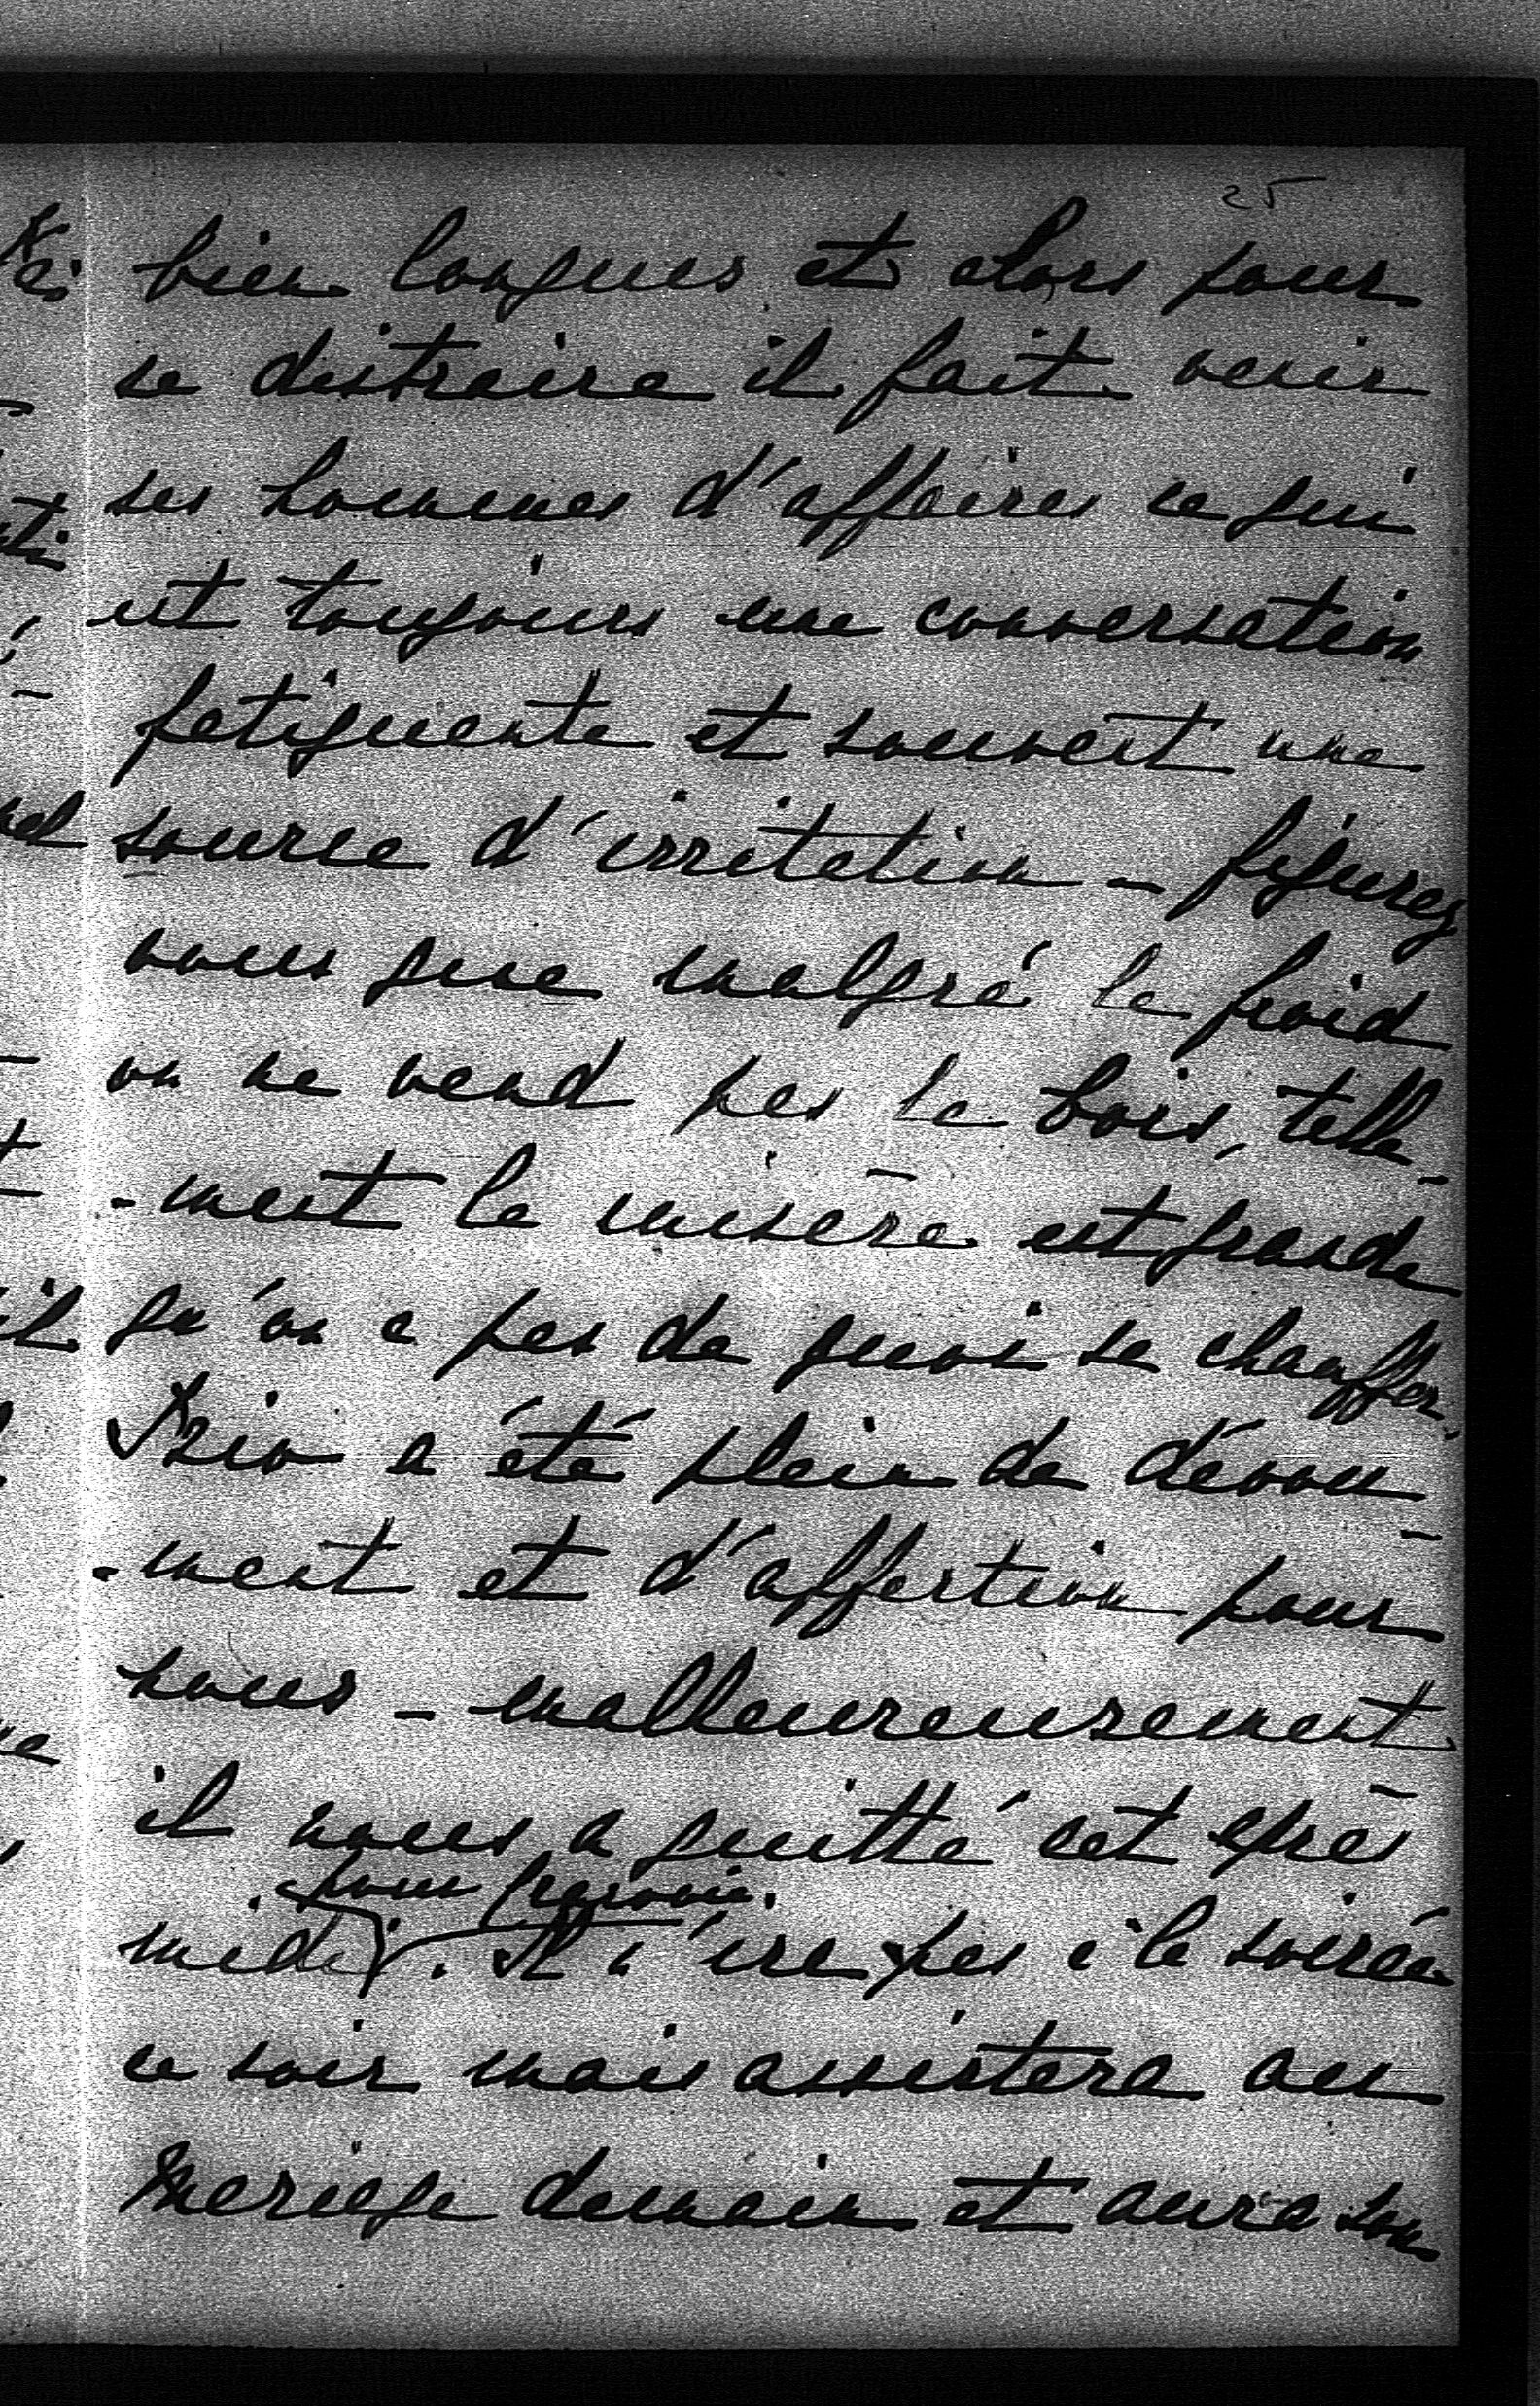 25
bien longues et alors pour
se distraire il fait venir
ses hommes d'affaires ce qui
est toujours une conversation
fatiguante et souvent une
source d'irritation - figurez
vous que malgré le froid
on ne vend pas le bois, telle-
-ment la misère est grande
qu'on a pas de quoi se chauffer.
a été plein de dévou-
-ment et d'affection pour
nous - malheureusement
il nous a quitté cet après-
pour
midi. Il n'ira pas à la soirée
ce soir mais assistera au
mariage demain et aura son